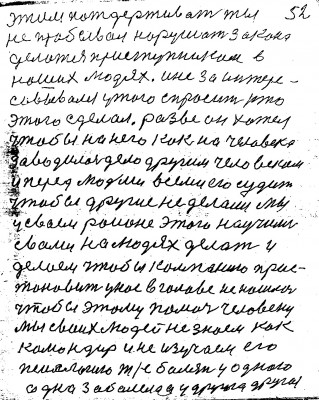 этим подтерживат ты 52
не пробывал нарушат закона
делатя приступником в
наших людях. и не заинтере-
совывали у того спросит кто
этого сделал. разве он хотел
чтобы на него как на человека
заводилая дело другим человеком
и перед людми всеми его судит
чтобы другие не делали мы
у своем районе этого научили
свами на людях делат и
делаем чтобы компанию прис-
тоновит у нас в голове не нашлос
чтобы этому помоч человеку
мы своих людей не знаем как
командир и не изучаем его
у одного
одна заболела а у друга другая